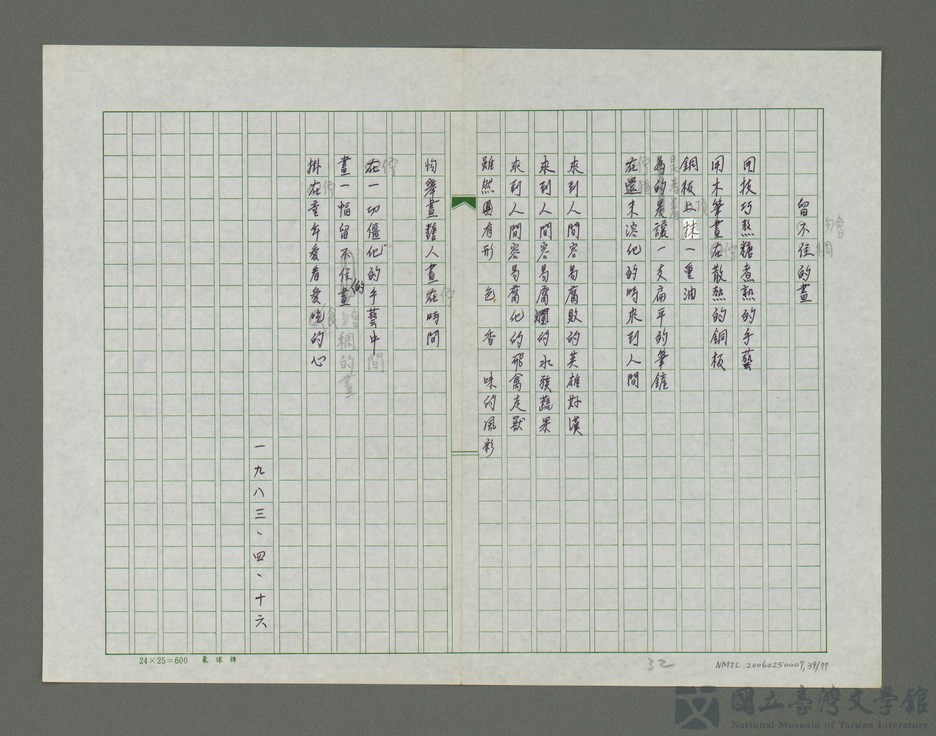 留不住的畫
用技巧熬糖煮熟的手藝
用木筆畫在散熱的銅板
銅板上抹一重油
為的是讓一支扁平的筆鏟
在還未溶化的時來到人間
來到人間容易腐敗的英雄好漢
來到人間容易腐爛的水族蔬果
來到人間容易腐化的飛禽走獸
雖然圓有形 色 香 味的風彩
畫糖人畫在時間
在一切僵化的手藝中
畫一幅留不住的畫
掛在童年愛看愛吃的心
一九八三、四、十六
24×25=600
32
NMTL 20060250007, 39/77
國立臺灣文學館
National Museum of Taiwan Literature